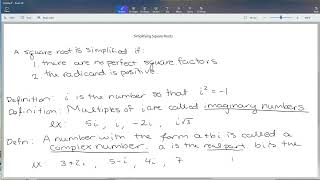 Simplifying Square Roots
A square root is simplified if:
1. there are no perfect square factors
2. the radicand is positive.
Definition: i is the number so that i² = -1
Definition: Multiples of i are called imaginary numbers
ex: 5i, i, -2i, i√3
Defn: A number with the form a+bi is called a
complex number. a is the real part b is the
ex: 3+2i, 5-i, 4i, 7